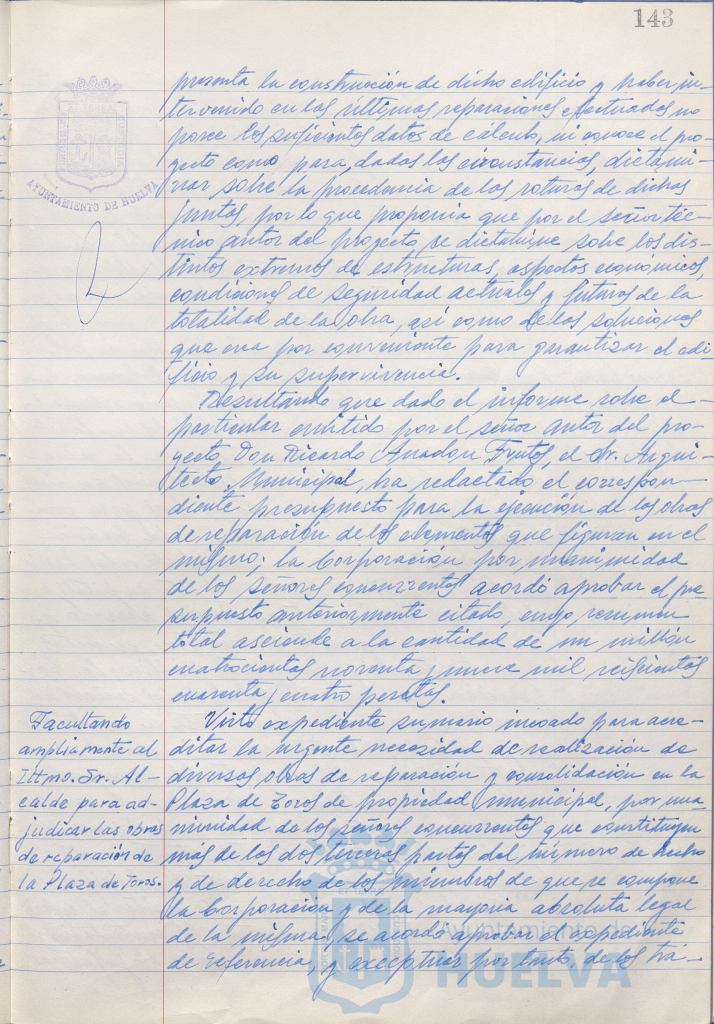 143
presenta la construcción de dicho edificio y haber in-
tervenido en las últimas reparaciones efectuadas no
posee los suficientes datos de cálculo, ni conoce el pro-
yecto como para, dadas las circunstancias, dictami-
nar sobre la procedencia de las roturas de dichas
juntas, por lo que proponia que por el señor téc-
nico autor del proyecto, se dictamine sobre los dis-
tintos extremos de estructuras, aspectos económicos,
condiciones de seguridad actuales y futuras de la
totalidad de la obra, así como de las soluciones
que crea por conveniente para garantizar el edi-
ficio y su supervivencia.
Resultando que dado el informe sobre el
particular emitido por el señor autor del pro-
yecto Don Ricardo Anadon Frutos, el Sr. Arqui-
tecto Municipal, ha redactado el correspon-
diente presupuesto para la ejecución de las obras
de reparación de los elementos que figuran en el
mismo; la Corporación por unanimidad
de los señores concurrentes acordó aprobar el pre-
supuesto anteriormente citado, cuyo resumen
total asciende a la cantidad de un millón
cuatrocientas noventa y nueve mil seiscientas
cuarenta y cuatro pesetas.
Visto expediente sumario incoado para acre-
ditar la urgente necesidad de realización de
diversas obras de reparación y consolidación en la
Plaza de Toros de propiedad municipal, por una-
nimidad de los señores concurrentes que constituyen
más de las dos terceras partes del número de hecho
y de derecho de los miembros de que se compone
la Corporación y de la mayoria absoluta legal
de la misma, se acordó aprobar el expediente
de referencia, y exceptuar por tanto de los trá-
Facultando
ampliamente al
Iltmo. Sr. Al-
calde para ad-
judicar las obras
de reparación de
la Plaza de Toros.
AYUNTAMIENTO DE HUELVA
Ayuntamiento de
HUELVA